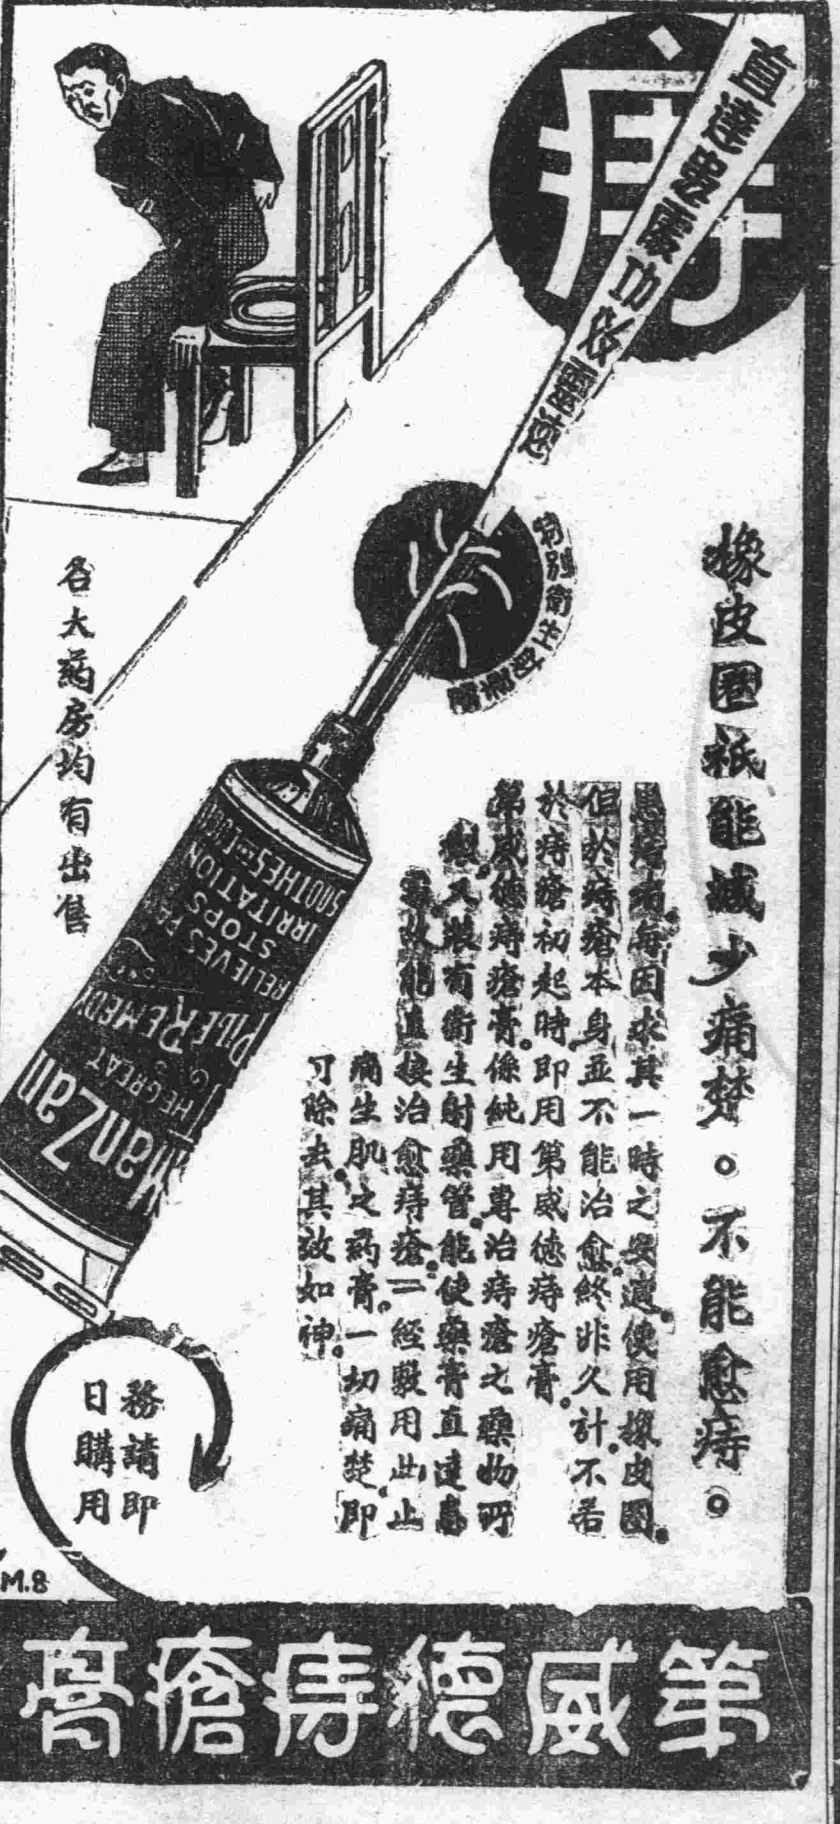 痔
直達患處功效靈速
特別衛生
橡皮圈祇能減少痛楚。不能愈痔。
患痔瘡者每因求其一時之安適。使用橡皮圈。
但於痔瘡本身並不能治愈。終非久計。不若
於痔瘡初起時。即用第威德痔瘡膏。
第威德痔瘡膏。係純用專治痔瘡之藥物所
製。又裝有衛生射藥管。能使藥膏直達患
處。故能直接治愈痔瘡。一經敷用此止
痛生肌之药膏。一切痛楚。即
可除去。其效如神。
各大药房均有出售
ManZan
THE GREAT
PILE REMEDY
RELIEVES PA
STOPS
IRRITATION
SOOTHES
務請即
日購用
M.8
第威德痔瘡膏